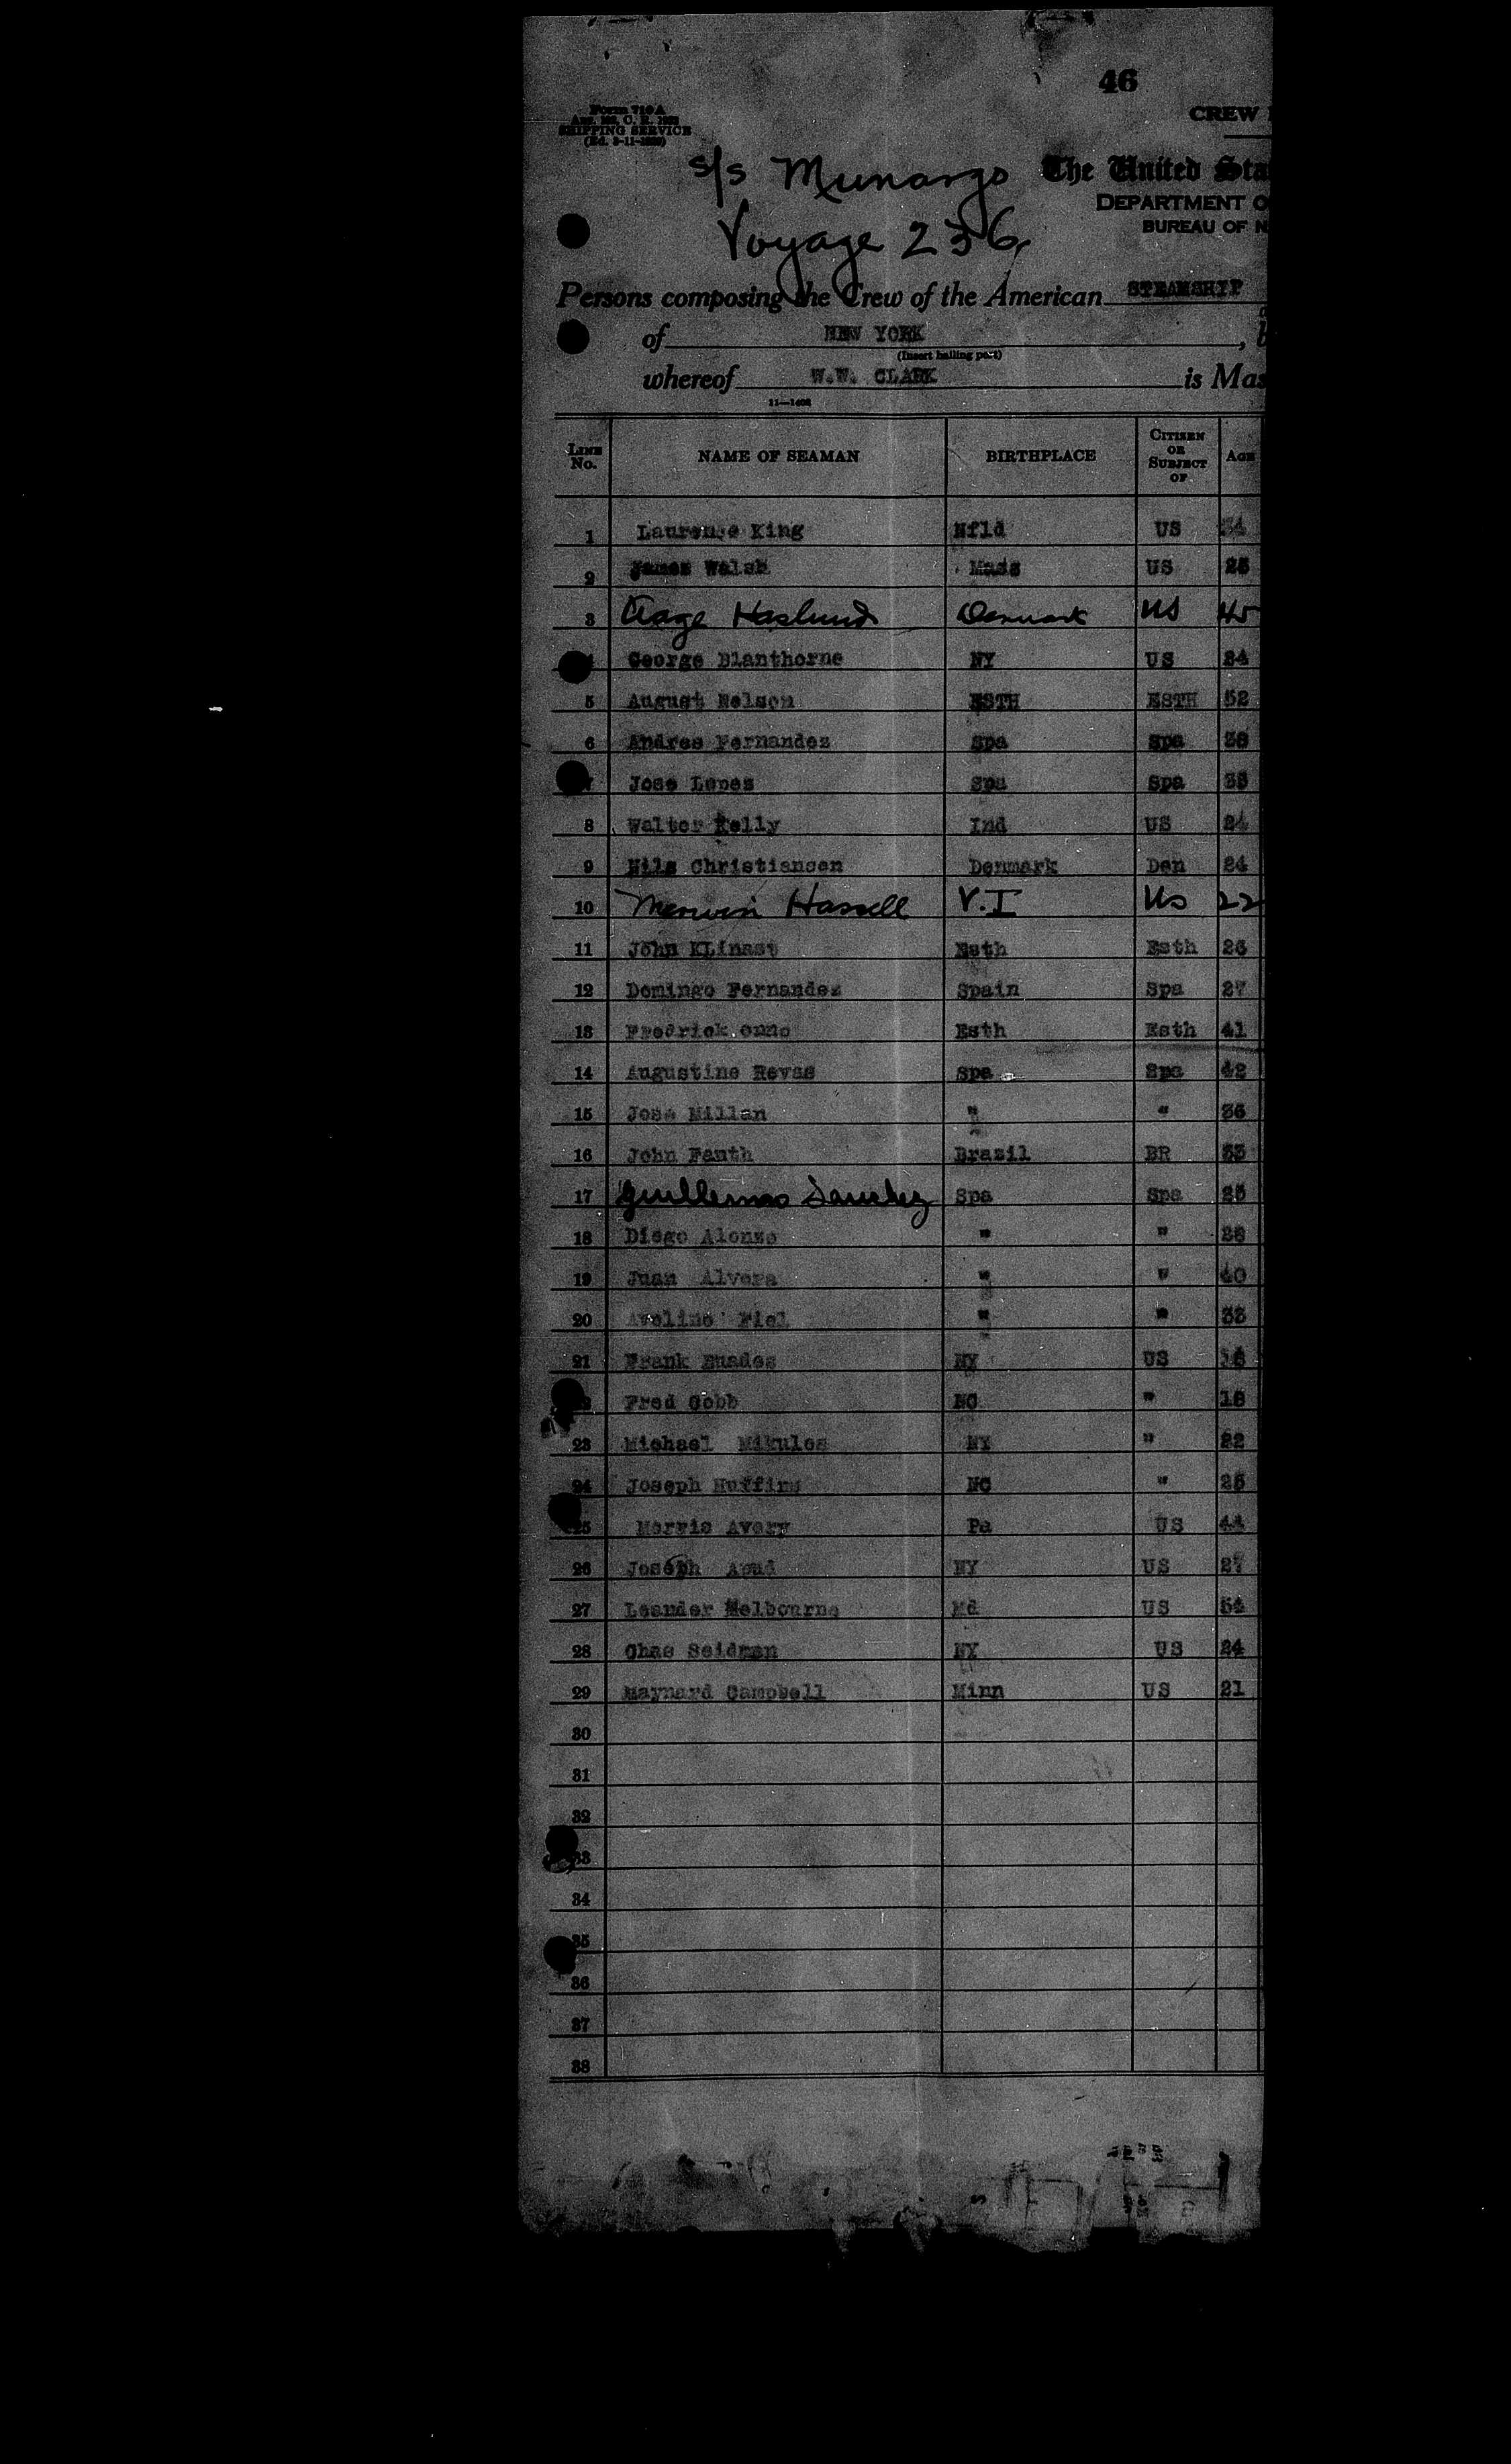 46
Form 710 A
SHIPPING SERVICE
CREW
s/s Munargo
The United Sta
DEPARTMENT O
Voyage 236
BUREAU OF N
Persons composing the Crew of the American STEAMSHIP
of NEW YORK
(Insert hailing port)
whereof W.W. CLARK is Mas
LINE No. NAME OF SEAMAN BIRTHPLACE CITIZEN OR SUBJECT OF AGE
1 Laurence King Nfld US 34
2 James Walsh Mass US
3 Aage Haslund Denmark US 45
George Blanthorne NY US
5 August Nelson ESTH ESTH 52
6 Andres Fernandez Spa Spa
Jose Lopes Spa Spa
8 Walter Kelly Ind US 24
9 Nils Christiansen Denmark Den 24
10 Mervin Hassell V.I US 22
11 John KLinast Esth Esth 26
12 Domingo Fernandez Spain Spa 27
13 Fredrick Esth Esth 41
14 Augustine Revas Spa Spa 42
15 Jose Millan " " 36
16 John Fauth Brazil BR
17 Guillermo Sanchez Spa Spa 25
18 Diego Alonzo " "
19 Juan Alvera " " 40
20 Avelino " " 33
21 Frank NY US
Fred Cobb NC " 18
23 Michael Mikulos NY " 22
24 Joseph Huffins NC "
25 Morris Avery Pa US 44
26 Joseph NY US 27
27 Leander Melbourne Md US 54
28 Chas Seidman NY US 24
29 Maynard Campbell Minn US 21
30
31
32
33
34
35
36
37
38